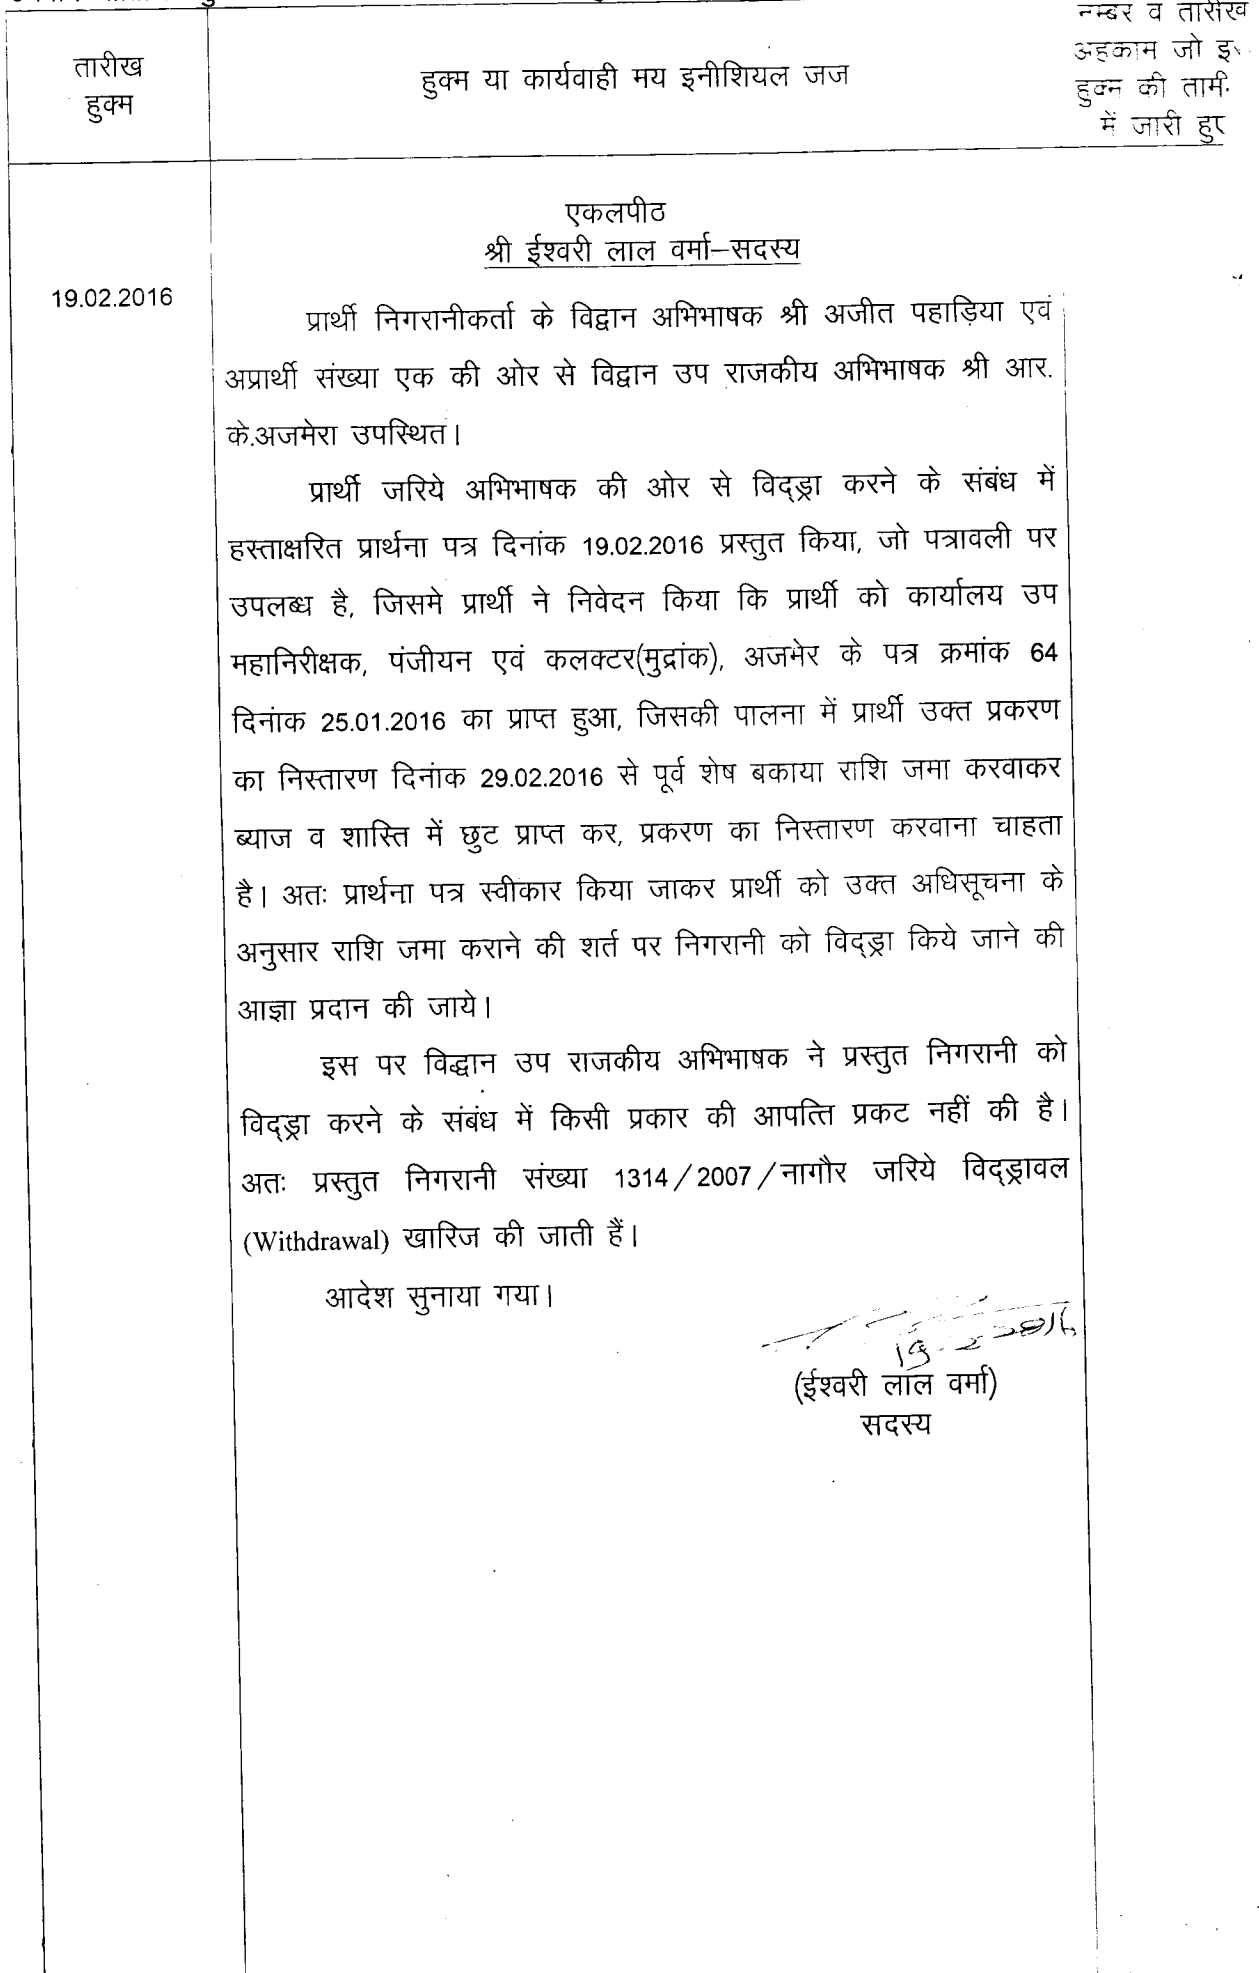 तारीख
हुक्म
हुक्म या कार्यवाही मय इनीशियल जज
नम्बर व तारीख
अहकाम जो
हुक्म की
में जारी
एकलपीठ
श्री ईश्वरी लाल वर्मा–सदस्य
19.02.2016
प्रार्थी निगरानीकर्ता के विद्वान अभिभाषक श्री अजीत पहाड़िया एवं
अप्रार्थी संख्या एक की ओर से विद्वान उप राजकीय अभिभाषक श्री आर.
के.अजमेरा उपस्थित।
प्रार्थी जरिये अभिभाषक की ओर से विद्ड्रा करने के संबंध में
हस्ताक्षरित प्रार्थना पत्र दिनांक 19.02.2016 प्रस्तुत किया, जो पत्रावली पर
उपलब्ध है, जिसमे प्रार्थी ने निवेदन किया कि प्रार्थी को कार्यालय उप
महानिरीक्षक, पंजीयन एवं कलक्टर(मुद्रांक), अजमेर के पत्र क्रमांक 64
दिनांक 25.01.2016 का प्राप्त हुआ, जिसकी पालना में प्रार्थी उक्त प्रकरण
का निस्तारण दिनांक 29.02.2016 से पूर्व शेष बकाया राशि जमा करवाकर
ब्याज व शास्ति में छुट प्राप्त कर, प्रकरण का निस्तारण करवाना चाहता
है। अतः प्रार्थना पत्र स्वीकार किया जाकर प्रार्थी को उक्त अधिसूचना के
अनुसार राशि जमा कराने की शर्त पर निगरानी को विद्ड्रा किये जाने की
आज्ञा प्रदान की जाये।
इस पर विद्धान उप राजकीय अभिभाषक ने प्रस्तुत निगरानी को
विद्ड्रा करने के संबंध में किसी प्रकार की आपत्ति प्रकट नहीं की है।
अतः प्रस्तुत निगरानी संख्या 1314/2007/नागौर जरिये विद्ड्रावल
(Withdrawal) खारिज की जाती हैं।
आदेश सुनाया गया।
19.2.2016
(ईश्वरी लाल वर्मा)
सदस्य